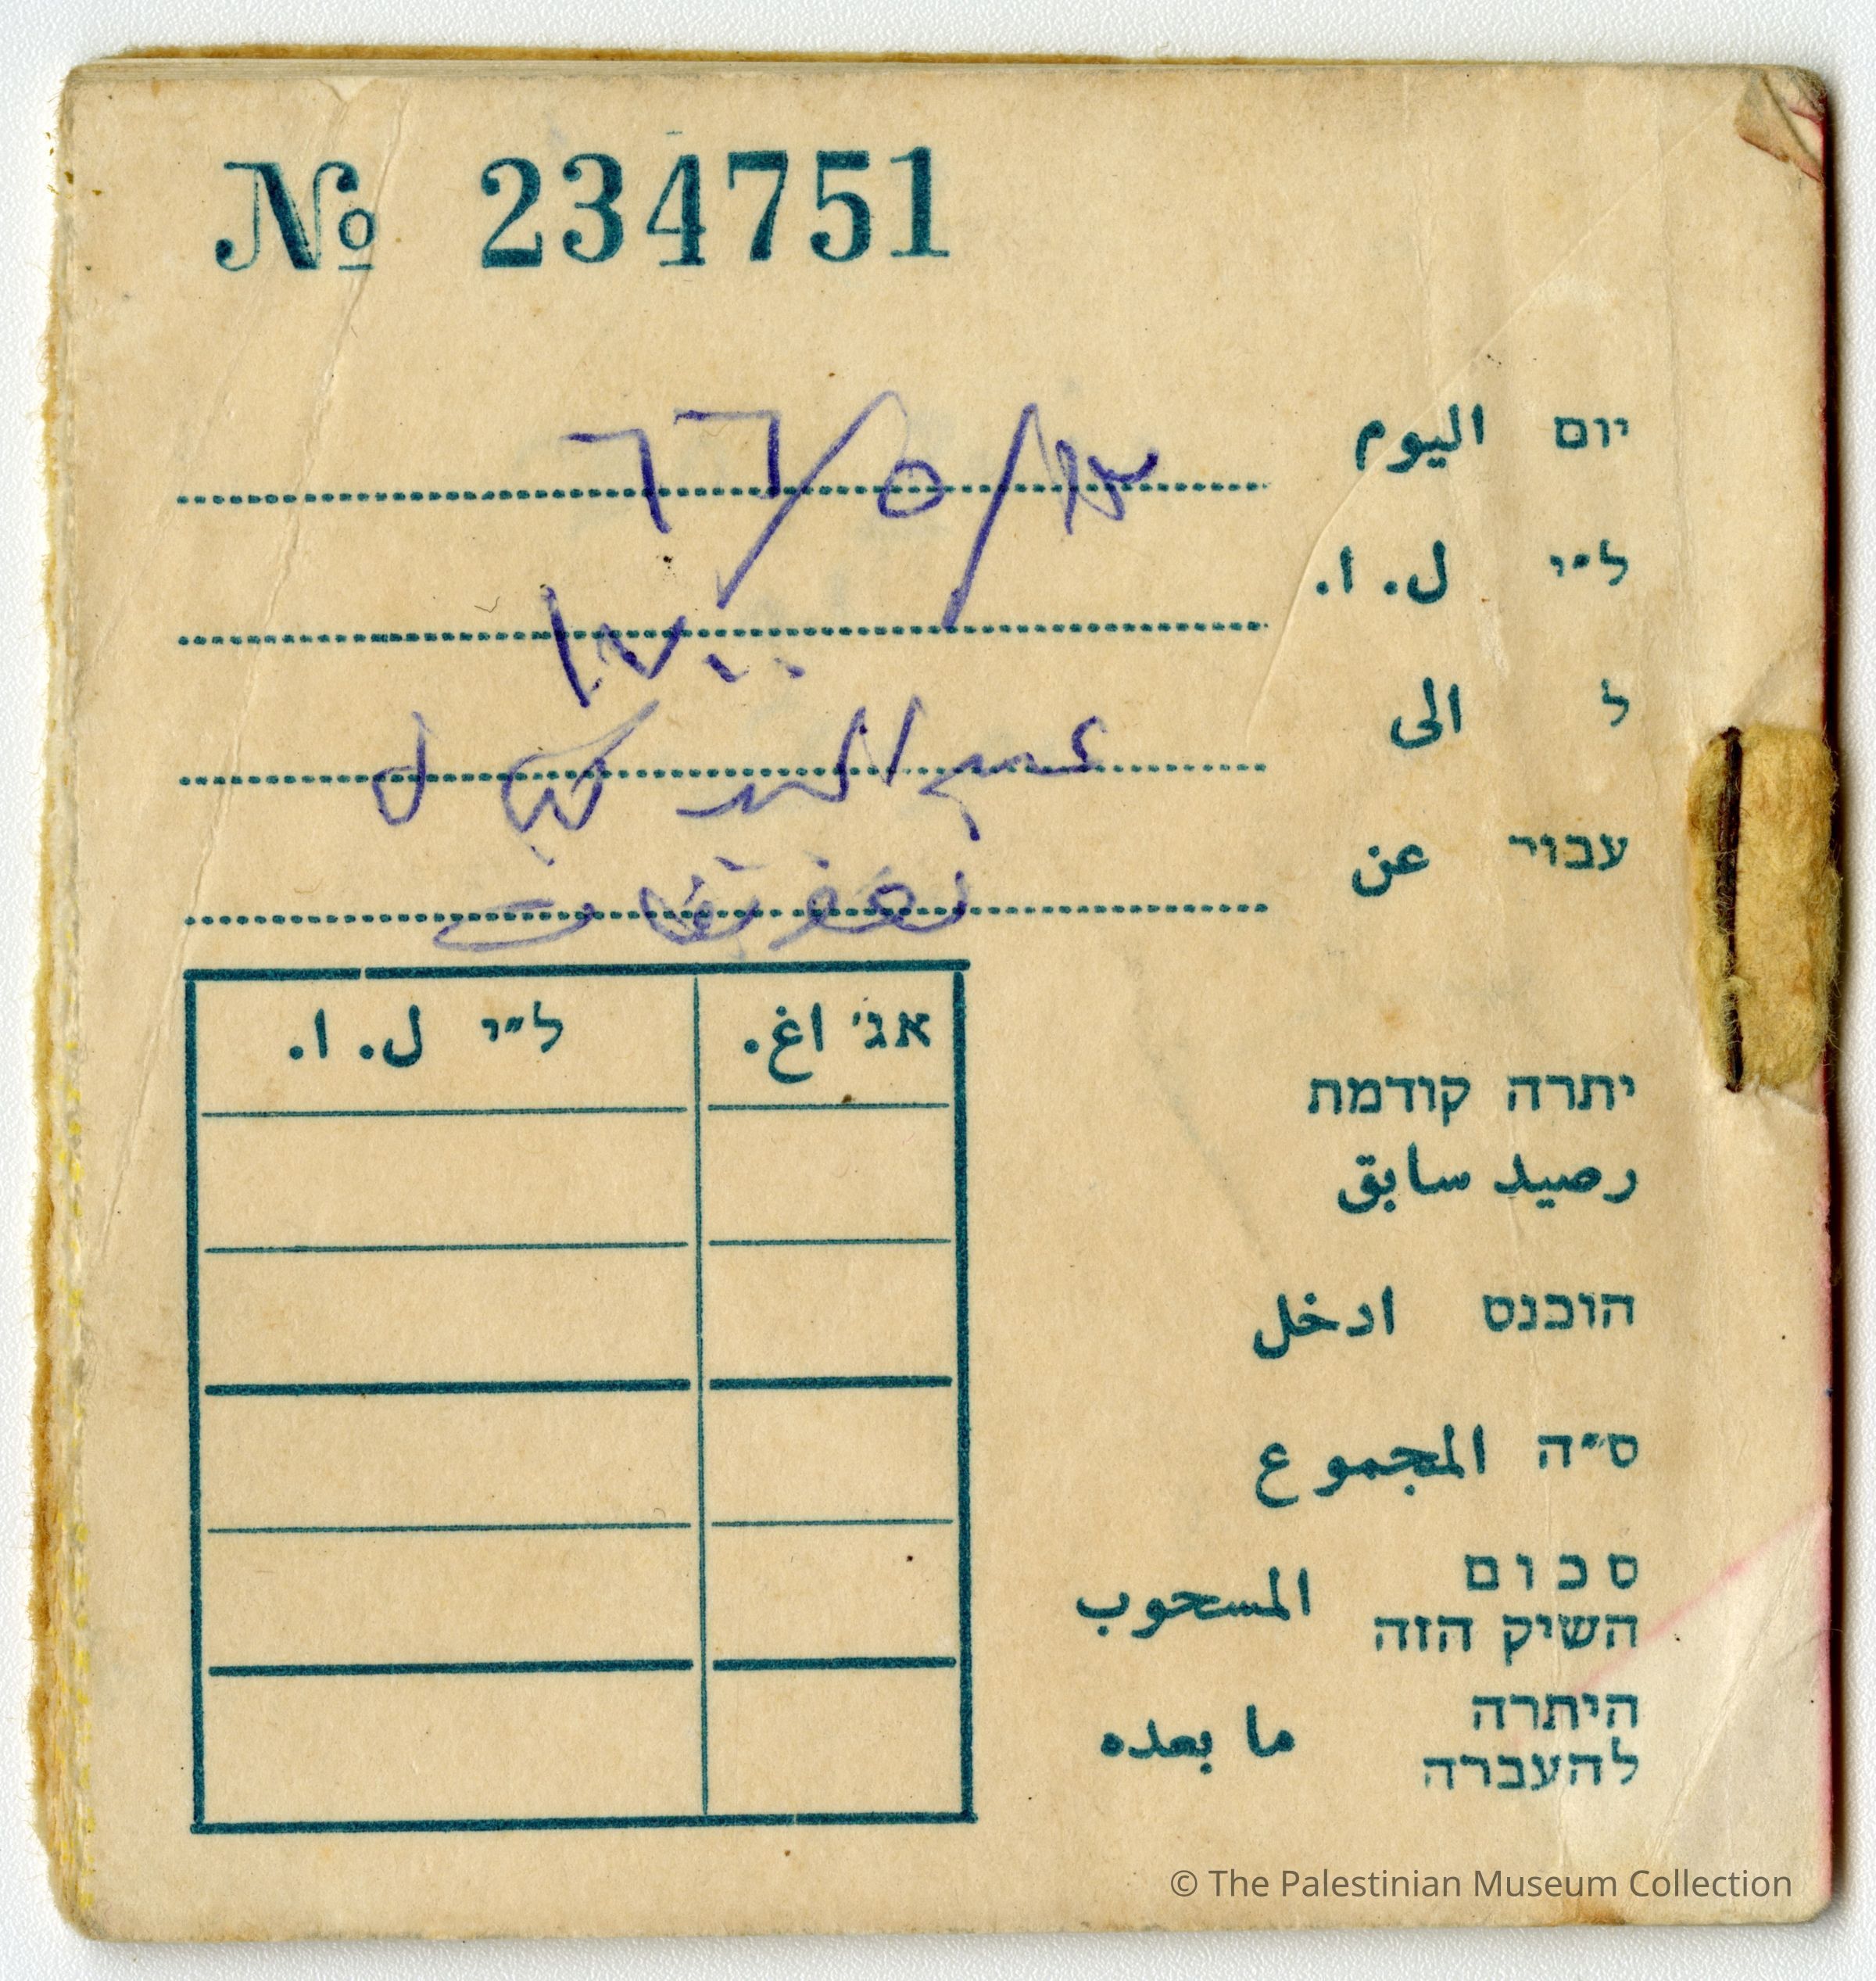 № 234751
יום اليوم ١٣/٥/٦٦
ל״י ل. ا.
ל الى
עבור عن
אג׳ اغ. ל״י ل. ا.
יתרה קודמת
رصيد سابق
הוכנס ادخل
ס״ה المجموع
סכום
השיק הזה المسحوب
היתרה
להעברה ما بعده
© The Palestinian Museum Collection